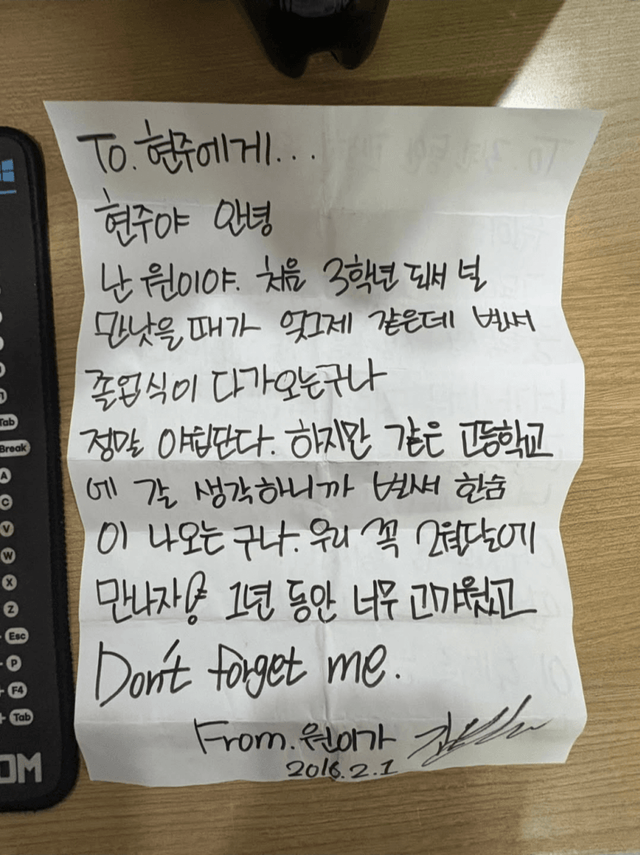 To. 현주에게...
현주야 안녕
난 원이야. 처음 3학년 되서 널
만낫을 때가 엊그제 같은데 벌써
졸업식이 다가오는구나
정말 아쉽단다. 하지만 같은 고등학교
에 갈 생각하니까 벌써 한숨
이 나오는구나. 우리 꼭 2월달에
만나자 1년 동안 너무 고마웠고
Don't forget me.
From. 원이가
2016.2.1
Tab
Break
A
C
V
W
X
Z
Esc
P
F4
Tab
OM